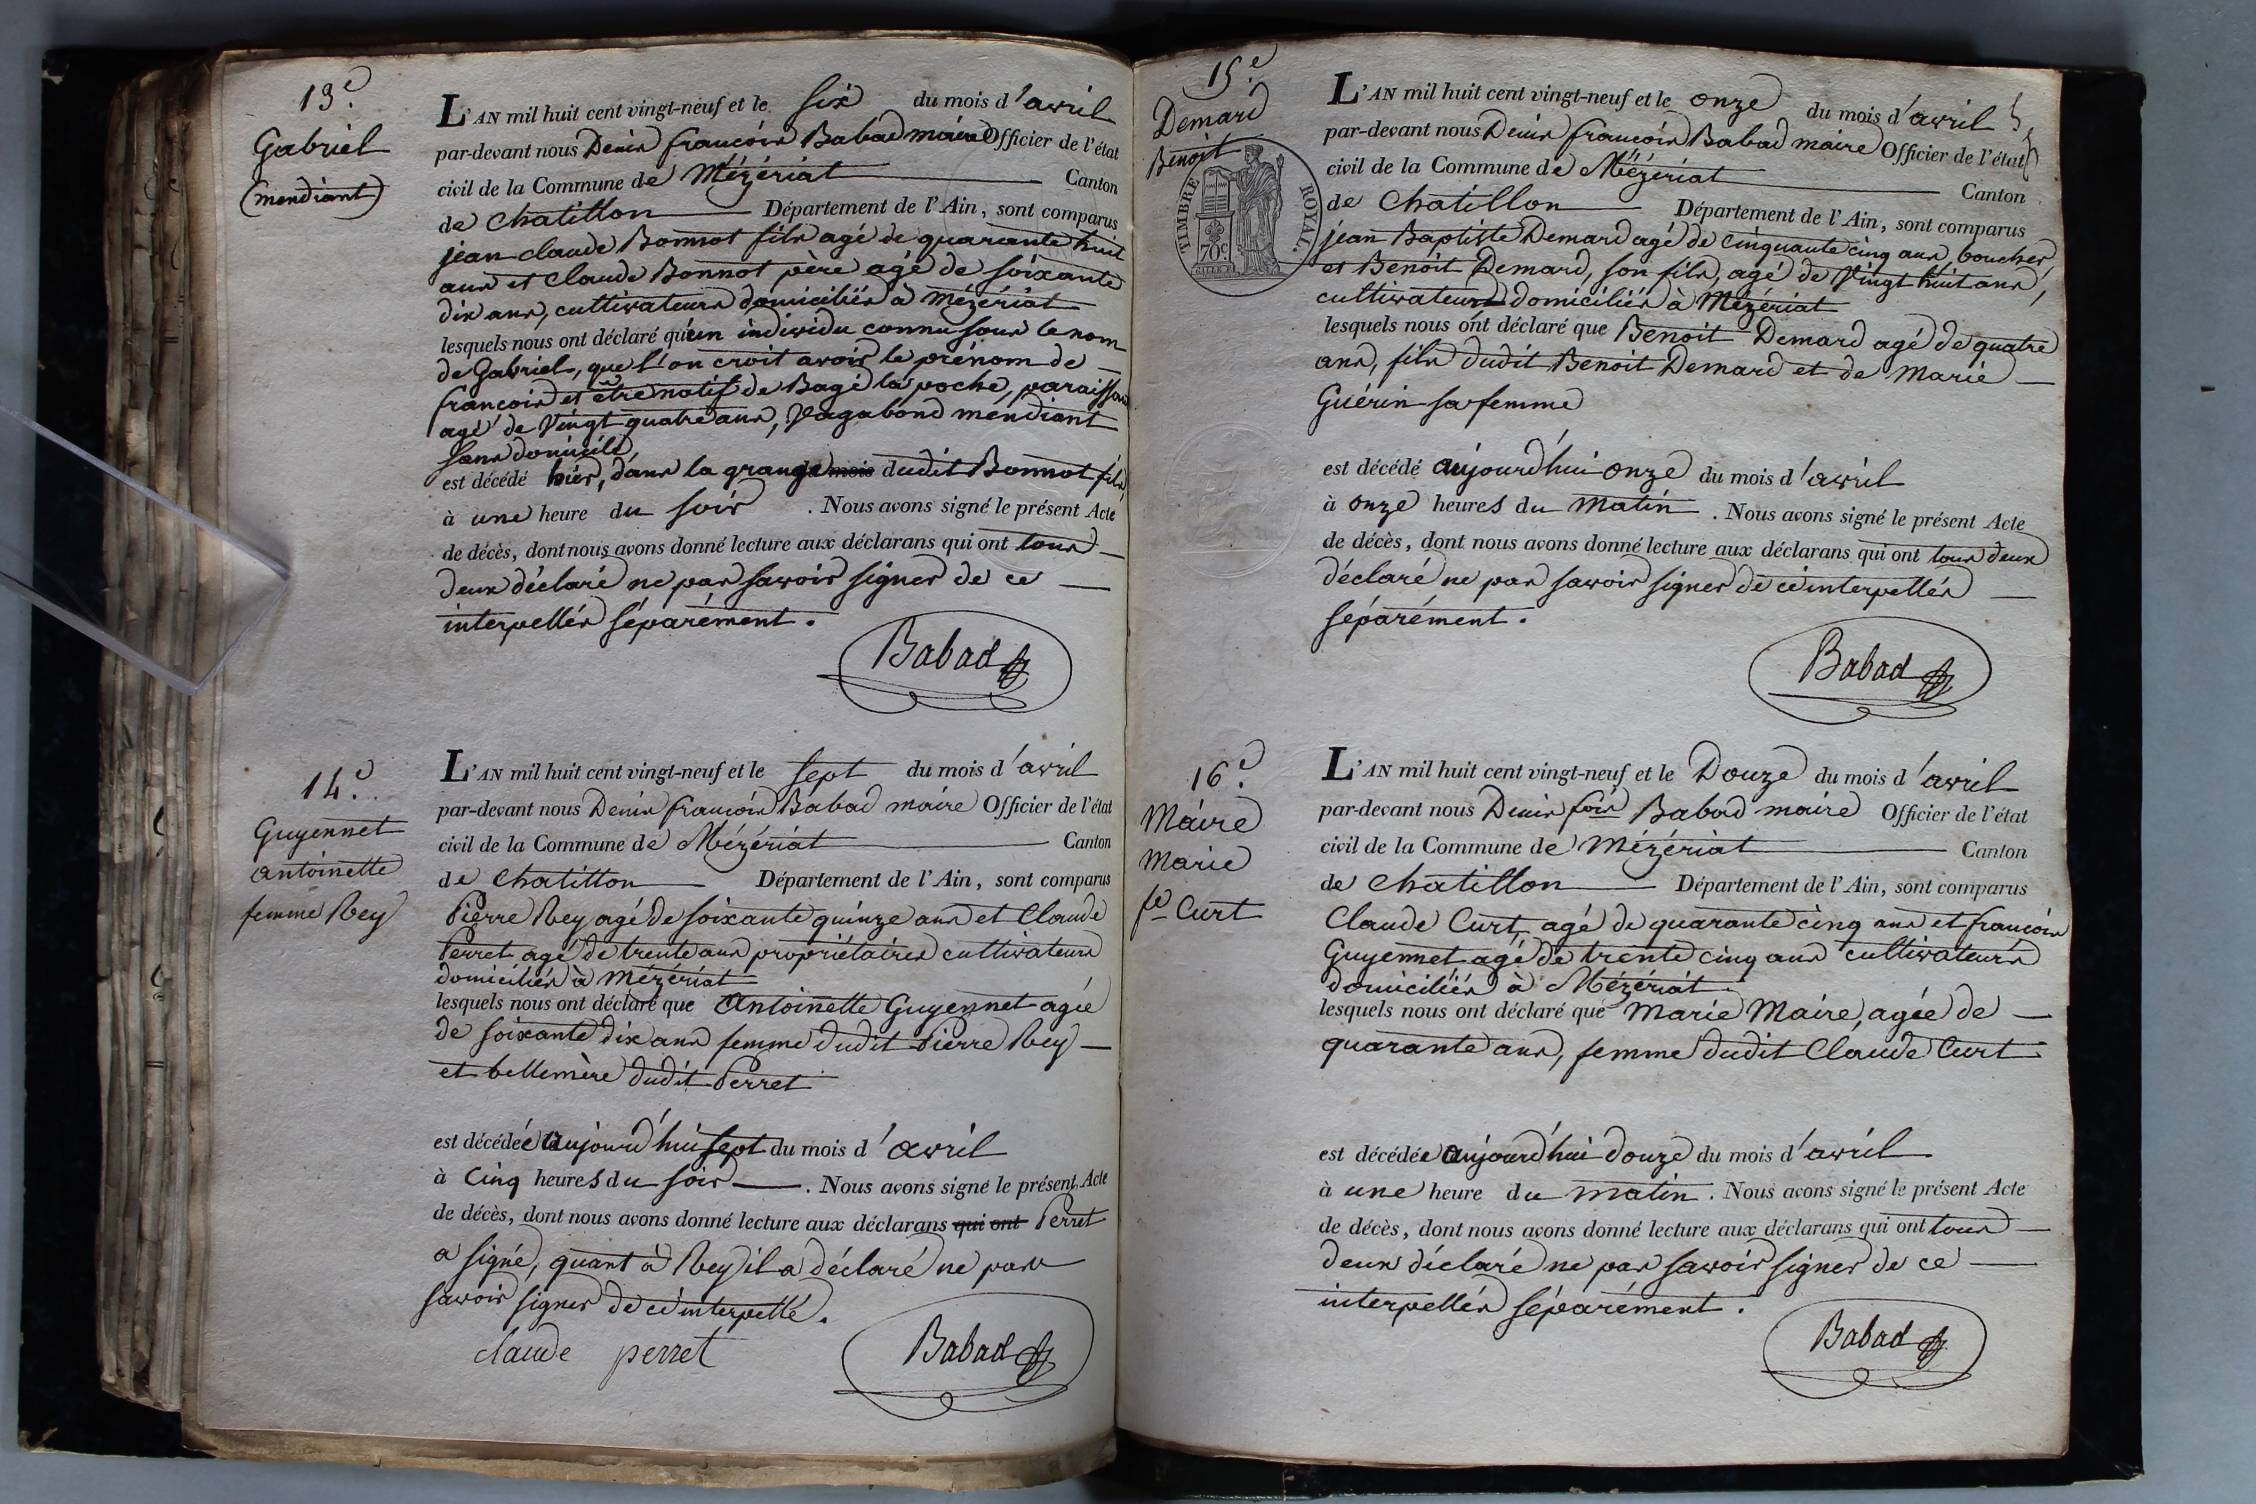 13e.
Gabriel
(mendiant)
L'AN mil huit cent vingt-neuf et le six du mois d'avril
par-devant nous Denis françois Babad maire Officier de l'état
civil de la Commune de Mézériat Canton
de Chatillon Département de l'Ain, sont comparus
jean claude Bonnot fils agé de quarante huit
ans et Claude Bonnot père agé de soixante
dix ans, cultivateurs domiciliés à Mézériat
lesquels nous ont déclaré qu'un individu connu sous le nom
de Gabriel, que l'on croit avoir le prénom de
françois et être natif de Bagé la poche, paraissant
agé de Vingt quatre ans, Vagabond mendiant
sans domicile,
est décédé hier, dans la grange mois dudit Bonnot fils,
à une heure du soir. Nous avons signé le présent Acte
de décès, dont nous avons donné lecture aux déclarans qui ont tous
deux déclaré ne pas savoir signer de ce
interpellés séparément.
Babad
14e.
Guyennet
antoinette
femme Rey
L'AN mil huit cent vingt-neuf et le sept du mois d'avril
par-devant nous Denis françois Babad maire Officier de l'état
civil de la Commune de Mézériat Canton
de Chatillon Département de l'Ain, sont comparus
Pierre Rey agé de soixante quinze ans et Claude
Perret agé de trente ans propriétaires cultivateurs
domiciliés à Mézériat
lesquels nous ont déclaré que Antoinette Guyennet agée
de soixante dix ans femme dudit Pierre Rey
et bellemère dudit Perret
est décédée aujourd'hui sept du mois d'avril
à cinq heures du soir. Nous avons signé le présent Acte
de décès, dont nous avons donné lecture aux déclarans qui ont Perret
a signé, quant à Rey il a déclaré ne pas
savoir signer de ce interpellé.
claude perret
Babad
15e.
Demard
Benoit
TIMBRE ROYAL.
70c.
L'AN mil huit cent vingt-neuf et le onze du mois d'avril
par-devant nous Denis françois Babad maire Officier de l'état
civil de la Commune de Mézériat Canton
de Chatillon Département de l'Ain, sont comparus
jean Baptiste Demard agé de cinquante cinq ans, boucher,
et Benoit Demard, son fils, agé de Vingt huit ans,
cultivateurs domiciliés à Mézériat
lesquels nous ont déclaré que Benoit Demard agé de quatre
ans, fils dudit Benoit Demard et de Marie
Guérin sa femme
est décédé aujourd'hui onze du mois d'avril
à onze heures du matin. Nous avons signé le présent Acte
de décès, dont nous avons donné lecture aux déclarans qui ont tous deux
déclaré ne pas savoir signer de ce interpellés
séparément.
Babad
16e.
Maire
Marie
fe Curt
L'AN mil huit cent vingt-neuf et le Douze du mois d'avril
par-devant nous Denis fois Babad maire Officier de l'état
civil de la Commune de Mézériat Canton
de Chatillon Département de l'Ain, sont comparus
Claude Curt, agé de quarante cinq ans et françois
Guyennet agé de trente cinq ans cultivateurs
domiciliés à Mézériat
lesquels nous ont déclaré que Marie Maire, agée de
quarante ans, femme dudit Claude Curt
est décédée aujourd'hui douze du mois d'avril
à une heure du matin. Nous avons signé le présent Acte
de décès, dont nous avons donné lecture aux déclarans qui ont tous
deux déclaré ne pas savoir signer de ce
interpellés séparément.
Babad